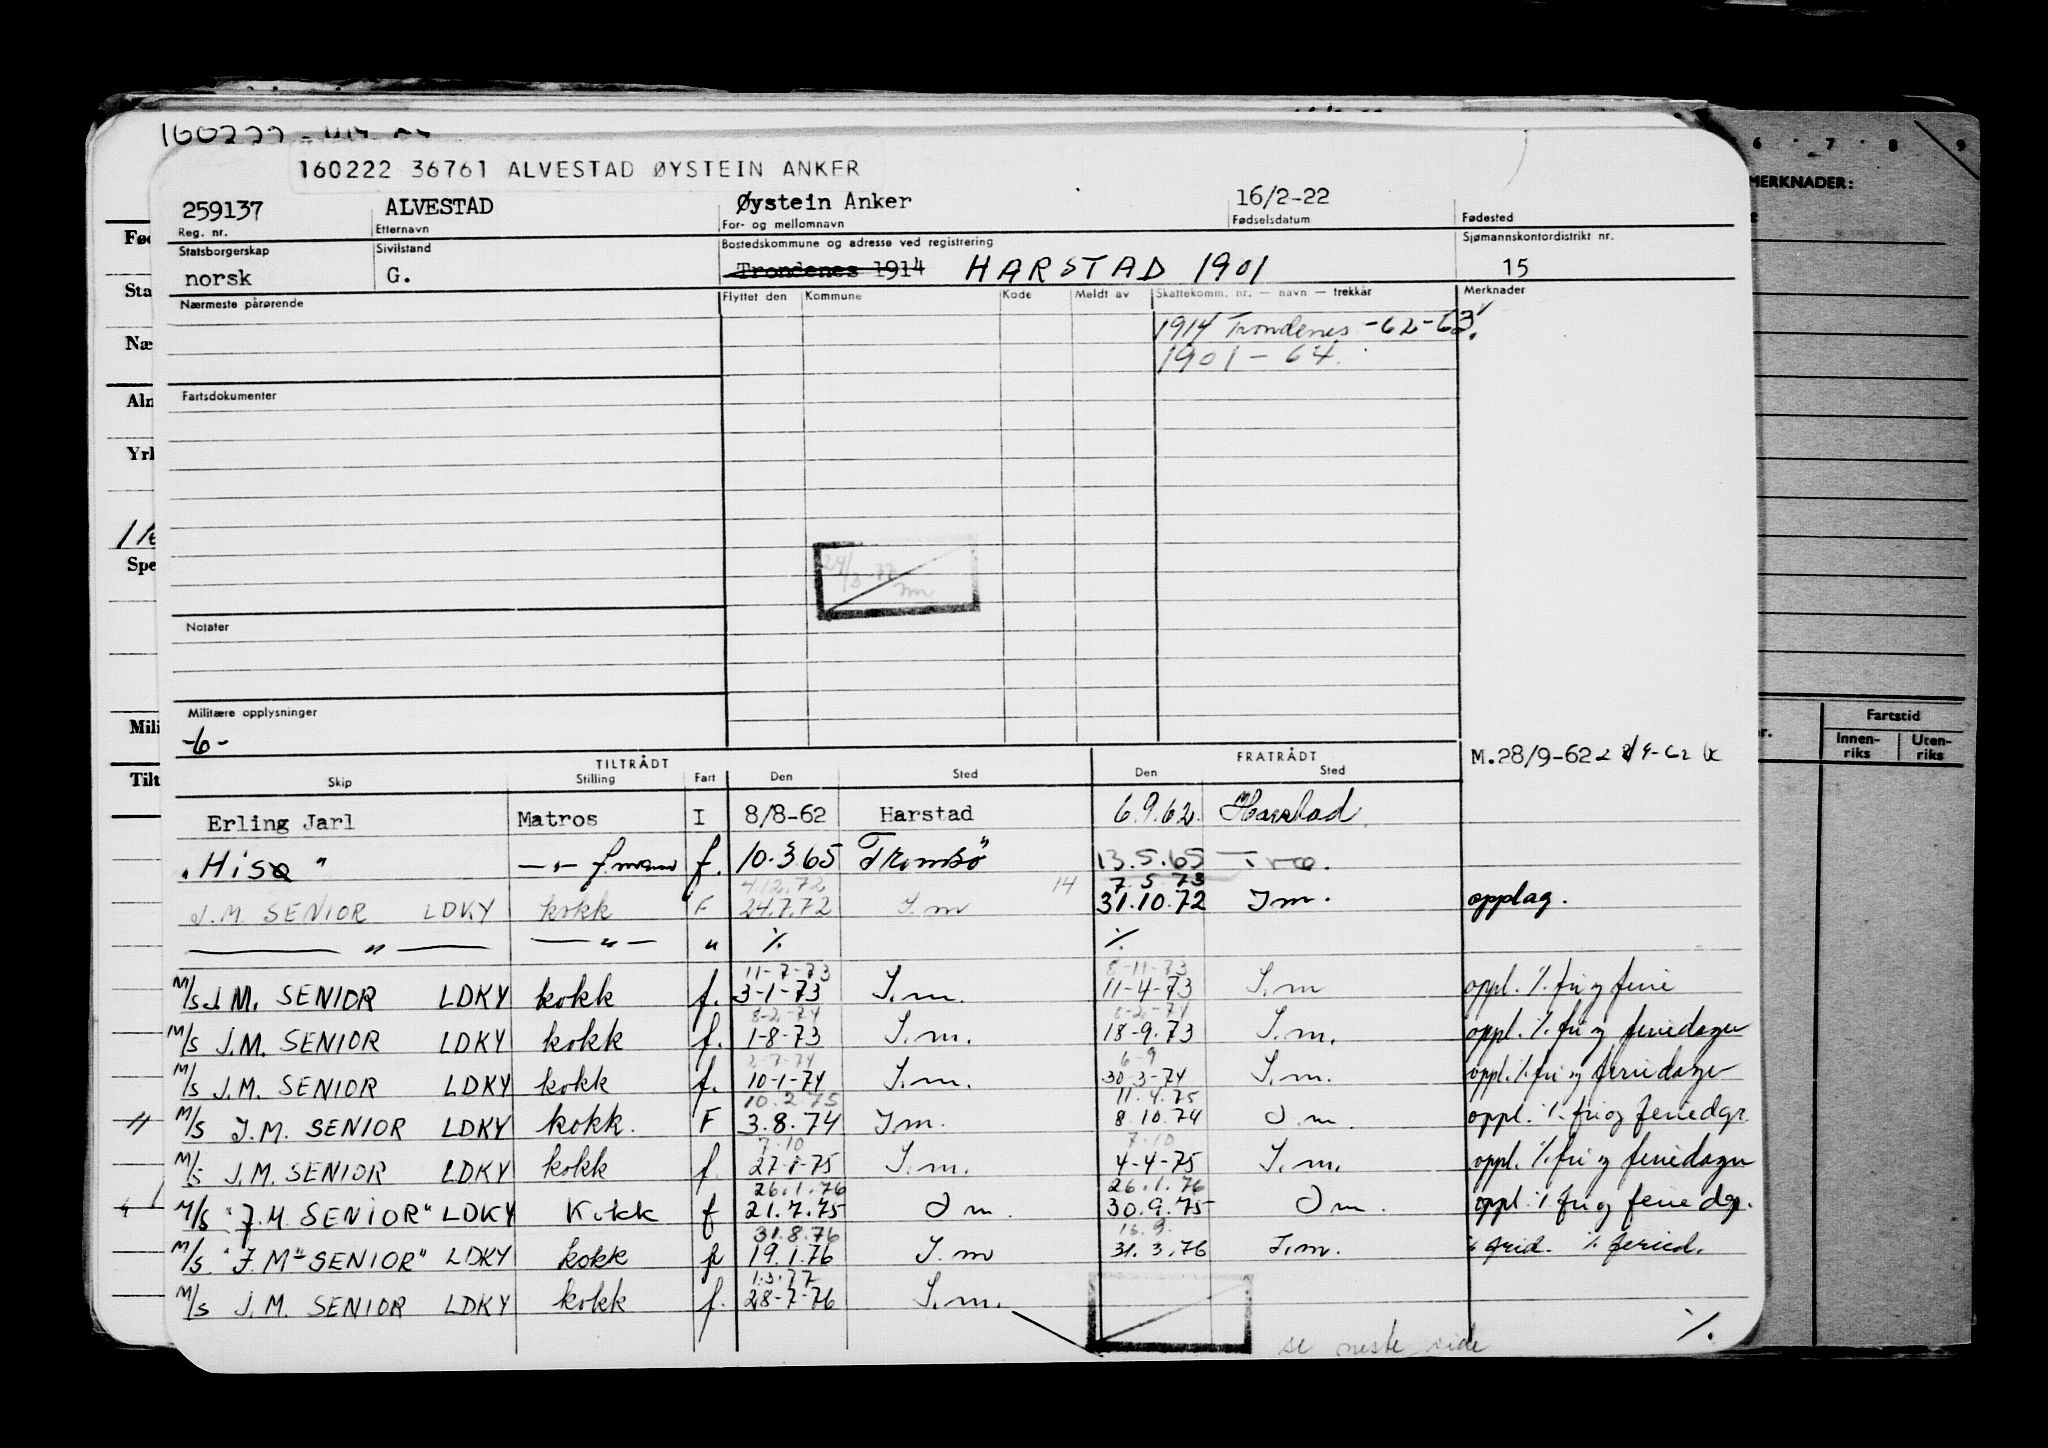 160222 36761 ALVESTAD ØYSTEIN ANKER
259137 ALVESTAD Øystein Anker 16/2-22
Reg. nr. Etternavn For- og mellomnavn Fødselsdatum Fødested
Statsborgerskap Sivilstand Bostedskommune og adresse ved registrering Sjømannskontordistrikt nr.
norsk G. Trondenes 1914 HARSTAD 1901 15
Nærmeste pårørende Flyttet den Kommune Kode Meldt av Skattekomm. nr. — navn — trekkår Merknader
1914 Trondenes -62-63.
1901 - 64.
Fartsdokumenter
Notater
Militære opplysninger
-6-
TILTRÅDT FRATRÅDT M.28/9-62
Skip Stilling Fart Den Sted Den Sted
Erling Jarl Matros I 8/8-62 Harstad 6.9.62. Harstad
"Hisø" — " — f. 10.3.65 Tromsø 13.5.65
4.12.72 14 7.5.73
J.M. SENIOR LDKY kokk F 24.7.72 I.m 31.10.72 I m. opplag.
— " — — " — " % %
11-7-73 8-11-73
M/S J.M. SENIOR LDKY kokk f. 3-1-73 I.m. 11-4-73 I.m oppl. %. fri og ferie
8-2-74 8-2-74
M/S J.M. SENIOR LDKY kokk f. 1-8-73 I.m. 18-9.73 I.m. oppl. %. fri og feriedager
2-7-74 6-9
M/S J.M. SENIOR LDKY kokk f. 10-1-74 I.m. 30-3-74 I.m. oppl. %. fri og feriedager
10.2.75 11.4.75
M/S J.M. SENIOR LDKY kokk. F 3.8.74 I m. 8.10.74 I m. oppl. %. fri og feriedgr.
7.10 7.10
M/S J.M. SENIOR LDKY kokk f. 27-1-75 I.m. 4-4-75 I.m. oppl. %. fri og feriedager
26.1.76 26.1.76
M/S "J.M. SENIOR" LDKY Kokk f 21.7.75 I m. 30.9.75 I m. oppl. % fri og feriedgr.
31.8.76 16.9.
M/S. "J.M" SENIOR" LDKY kokk f 19.1.76 I.m 31.3.76 I.m. % frid. % feried.
1.3.77
M/S J.M. SENIOR LDKY kokk f. 28-7-76 I.m.
se neste side %.
6 7 8 9
MERKNADER:
Fartstid
Innenriks Utenriks